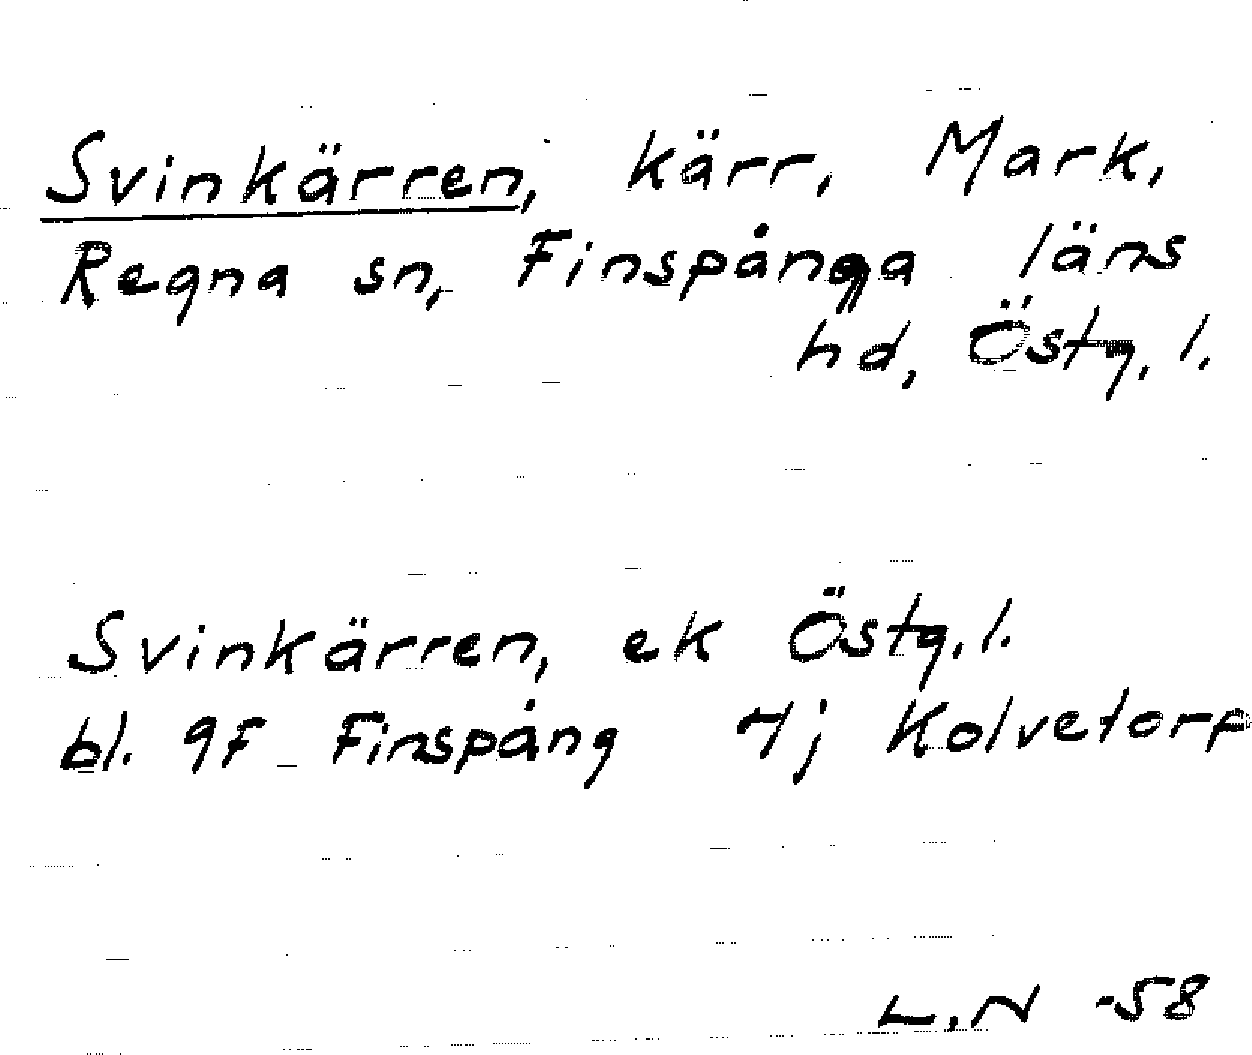 Svinkärren, kärr, Mark,
Regna sn, Finspånga läns
hd, Östg. l.
Svinkärren, ek Östg. l.
bl. 9F Finspång 7j Kolvetorp
L.N -58